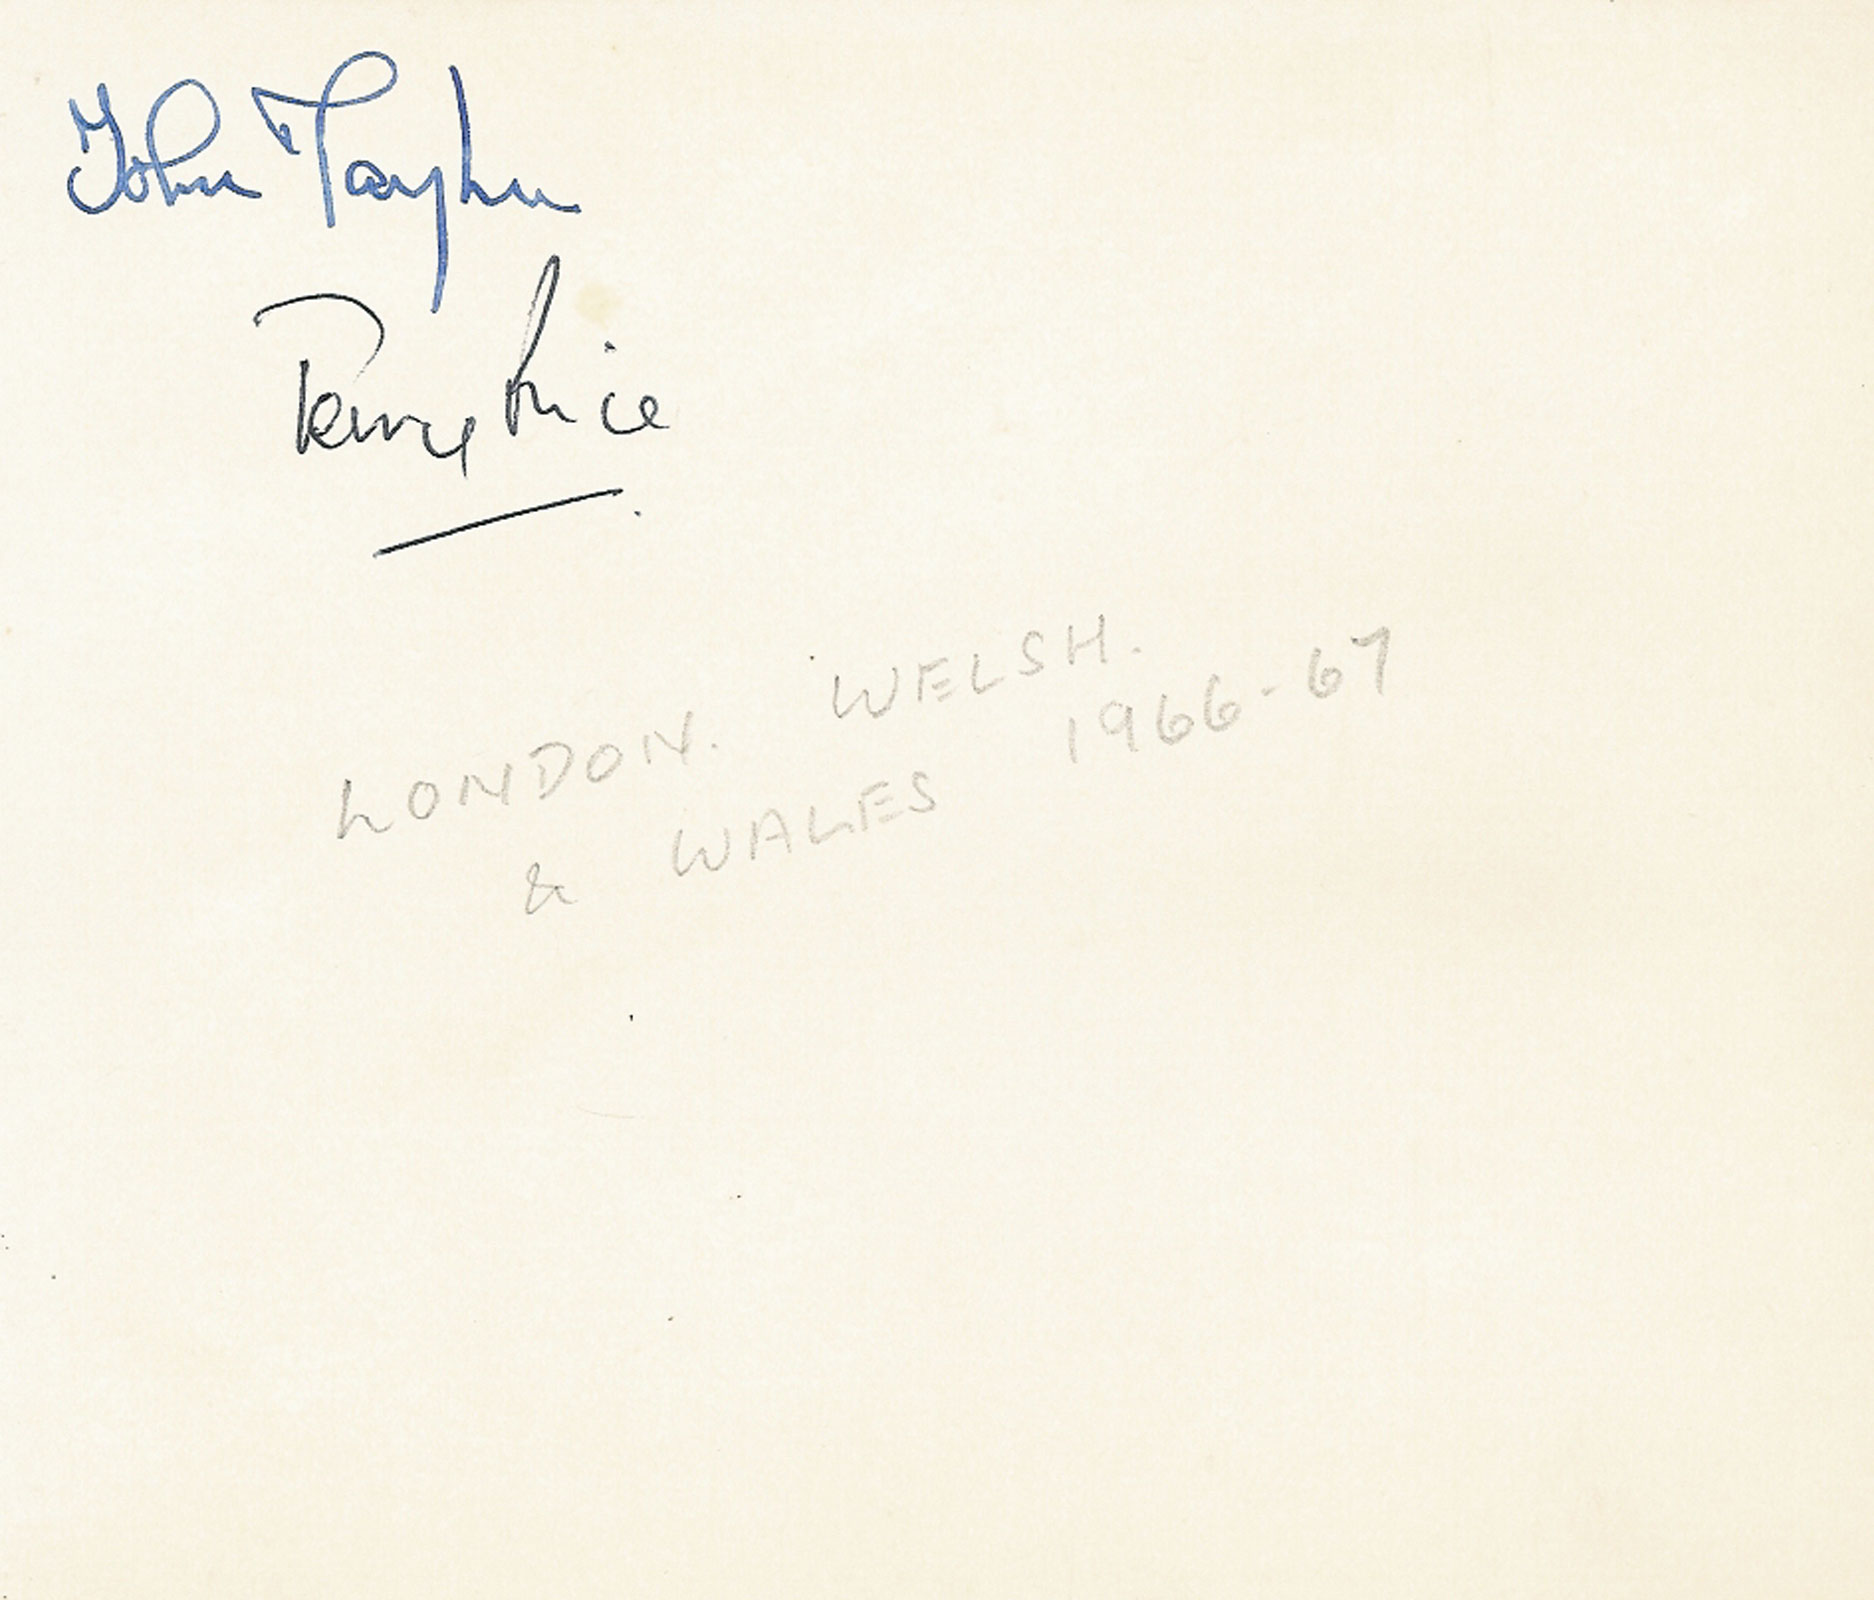 John Taylor
Terry Price
LONDON. WELSH.
& WALES 1966-67